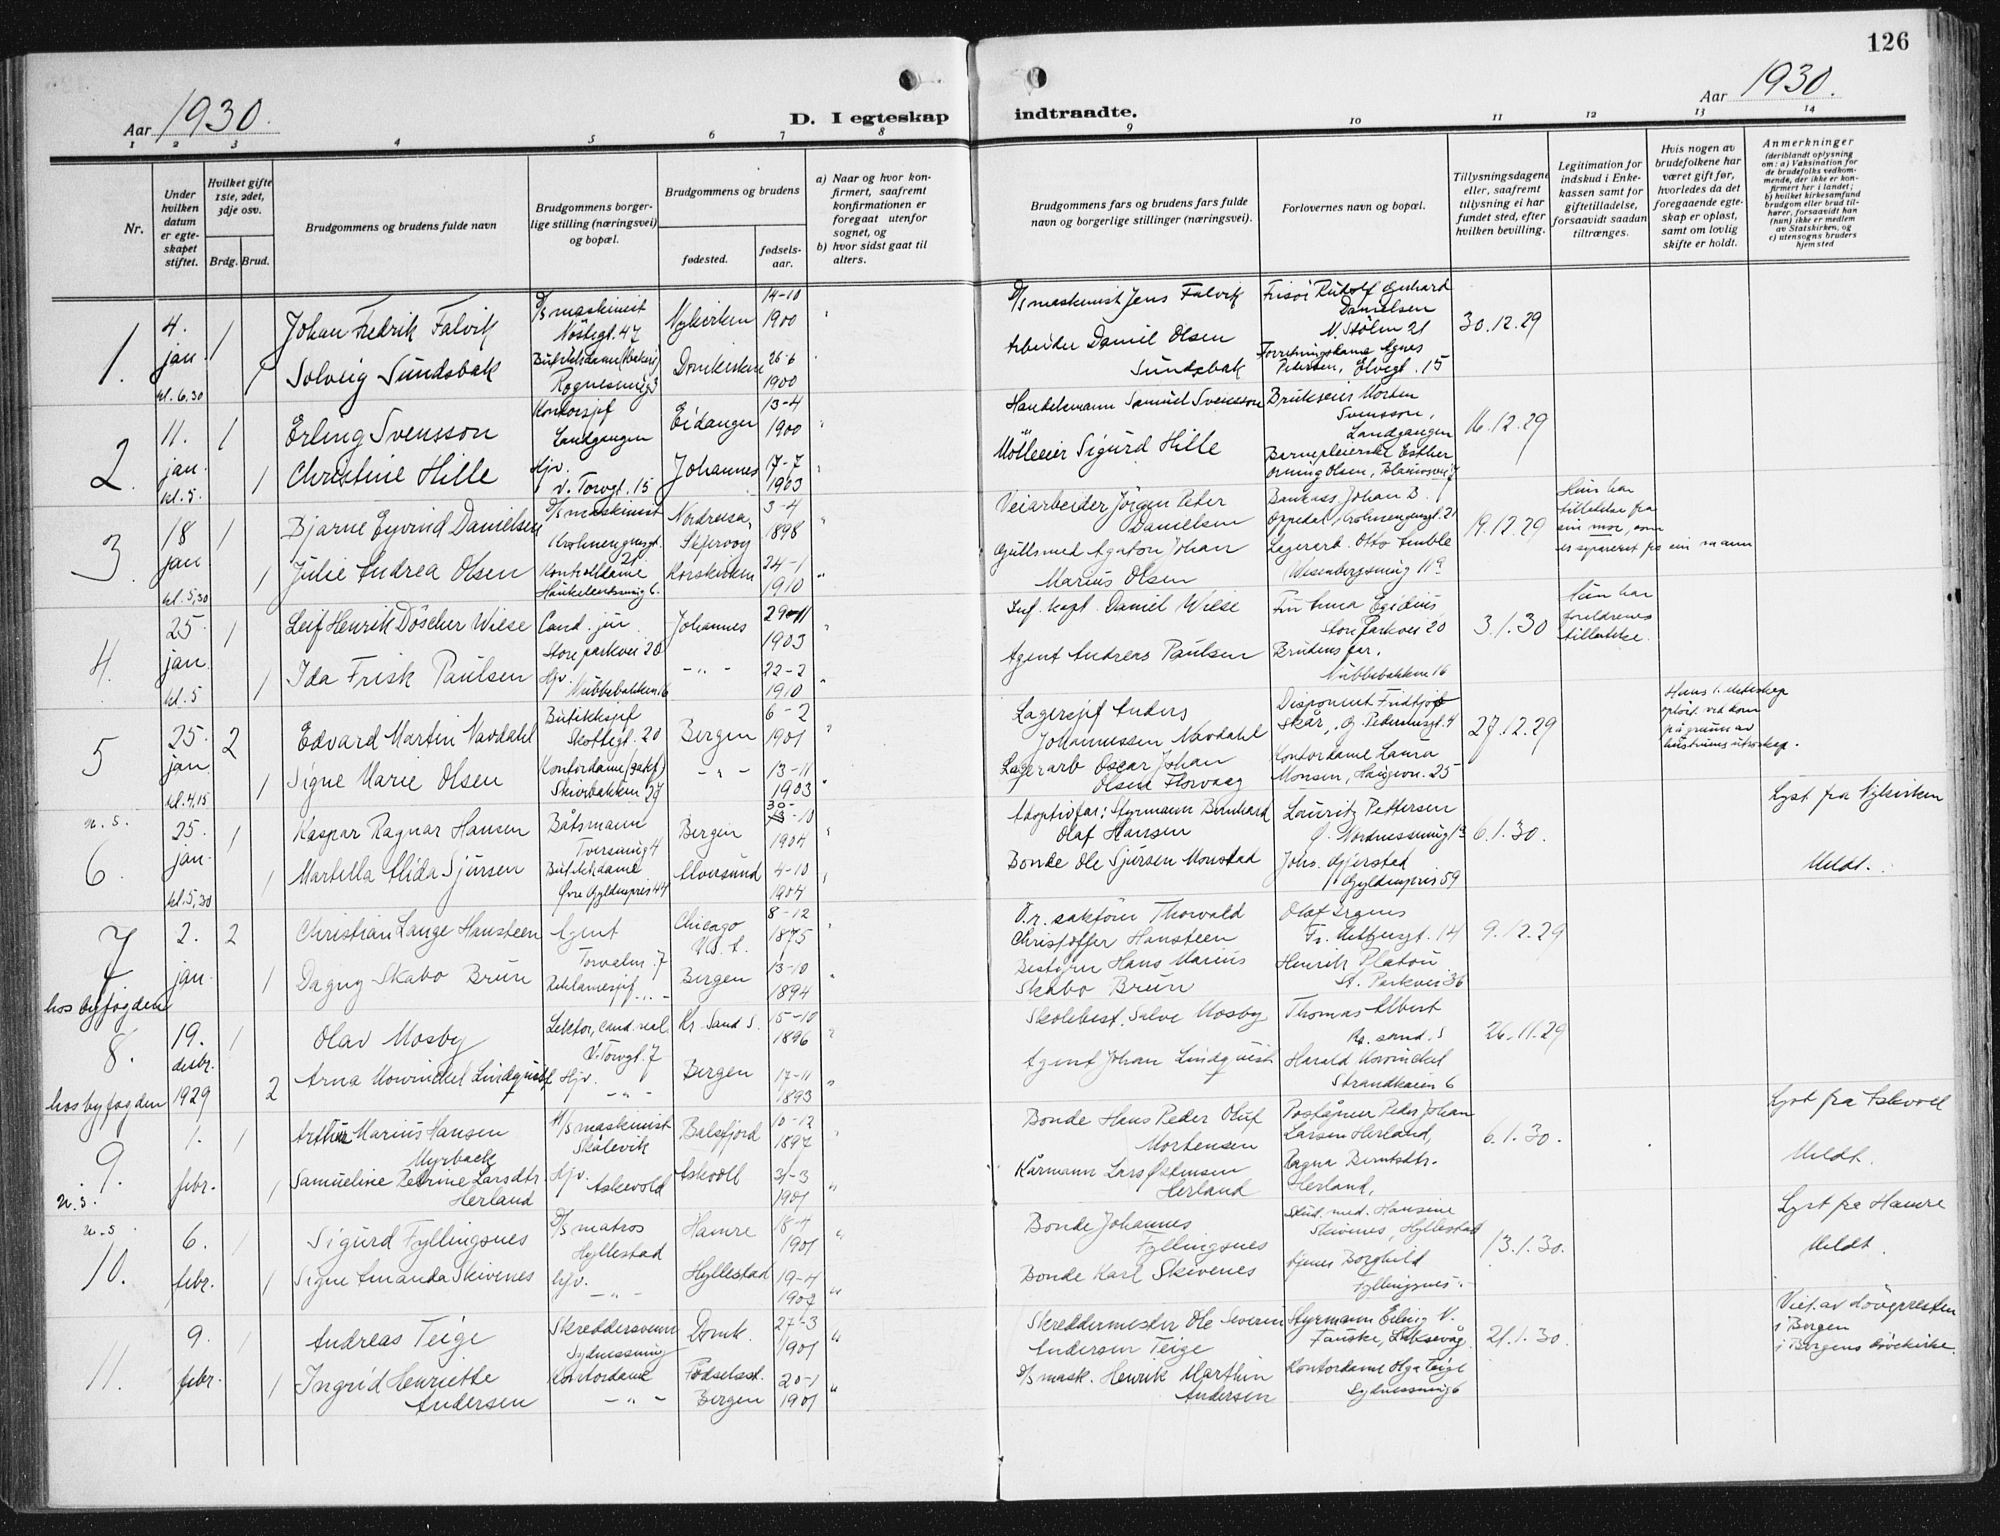 126
Aar 1930.
D. I egteskap indtraadte.
Aar 1930.
1 2 3 4 5 6 7 8 9 10 11 12 13 14
Nr.
Under hvilken datum er egteskapet stiftet.
Hvilket gifte 1ste, 2det, 3dje osv.
Brdg. Brud.
Brudgommens og brudens fulde navn
Brudgommens borgerlige stilling (næringsvei) og bopæl.
Brudgommens og brudens
fødested.
fødselsaar.
a) Naar og hvor konfirmert, saafremt konfirmationen er foregaat utenfor sognet, og
b) hvor sidst gaat til alters.
Brudgommens fars og brudens fars fulde navn og borgerlige stillinger (næringsvei).
Forlovernes navn og bopæl.
Tillysningsdagene eller, saafremt tillysning ei har fundet sted, efter hvilken bevilling.
Legitimation for indskud i Enkekassen samt for giftetilladelse, forsaavidt saadan tiltrænges.
Hvis nogen av brudefolkene har været gift før, hvorledes da det foregaaende egteskap er opløst, samt om lovlig skifte er holdt.
Anmerkninger
(deriblandt oplysning om: a) Vaksination for de brudefolks vedkommende, der ikke er konfirmert her i landet; b) hvilket kirkesamfund brudgom eller brud tilhører, forsaavidt han (hun) ikke er medlem av Statskirken, og c) utensogns bruders hjemsted
1. 4. jan. kl. 6,30 1 Johan Fredrik Falvik D/s maskinist Nøstegt. 47 Nykirken 14-10 1900 " D/s maskinist Jens Falvik Frisør Rudolf Gerhard Danielsen N. Stølen 21 30.12.29
1 Solveig Sundsbak Butikkdame Domkirken 26-6 1900 Arbeider Daniel Olsen Sundsbak Forretningsdame Agnes Petersen, Elvegt. 15
2. 11. jan. kl. 5. 1 Erling Svensson Kontorsjef Landgangen Eidanger 13-4 1900 " Handelsmann Samuel Svensson Brukseier Morten Svensson, Landgangen 16.12.29
1 Christine Hille Hjv. V. Torvgt. 15 Johannes 17-7 1903 " Mølleeier Sigurd Hille Barnepleierske Esther Olsen,
3. 18 jan kl. 5,30 1 Bjarne Eyvind Danielsen D/s maskinist Krohnengensgt. 21 Nordreisa, Skjervøy 3-4 1898 " Veiarbeider Jørgen Peter Danielsen Bankass. Johan B. Oppedal, Krohnengensgt. 21 19.12.29 Hun har tillatelse fra sin mor, som er separert fra sin mann
1 Julie Andrea Olsen Kontordame Haukelandsveig 6. Korskirken 24-1 1910 " Gullsmed Agaton Johan Marius Olsen Lagerarb. Otto Amble Wesenbergsmug 11 a
4. 25 jan. kl. 5 1 Leif Henrik Döscher Wiese Cand. jur Store parkvei 20 Johannes 29-11 1903 " Inf. kapt. Daniel Wiese Fru Anna Egidius Store Parkvei 20 3.1.30 Hun har foreldrenes tillatelse.
1 Ida Frisk Paulsen Hjv. Nubbebakken 16 -"- 22-2 1910 " Agent Andreas Paulsen Brudens far, Nubbebakken 16
5 25. jan. kl. 4,15 2 Edvard Martin Navdahl Butikksjef Skottegt. 20 Bergen 6-2 1901 " Lagersjef Anders Johannessen Navdahl Disponent Fridtjof Skår, 27.12.29 Hans 1. ekteskap opløst ved dom på grunn av hustruens utroskap.
1 Signe Marie Olsen Kontordame Skivebakken 29 -"- 13-11 1903 " Lagerarb Oscar Johan Olsen Florvaag Kontordame Laura Monsen, Haugevn. 25
u. s. 6 25. jan. kl. 5,30 1 Kaspar Ragnar Hansen Båtsmann Tversmug 4 Bergen 30-10 1904 " Adoptivfar: Styrmann Bernhard Olaf Hansen Lauritz Pettersen Nordnessmug 13 6.1.30. Lyst fra Nykirken
1 Martella Alida Sjursen Butikkdame Øvre Gyldenpris 44 Alversund 4-10 1904 " Bonde Ole Sjursen Monstad Johs. Gjerstad Gyldenpris 59 Meldt.
7 hos byfogden 2. jan. 2 Christian Lange Hansteen Agent Torvalm. 7 Chicago U.S.A. 8-12 1875 " O.r. sakfører Thorvald Christoffer Hansteen Olaf Irgens Fr. Meltzersgt. 14 9.12.29
1 Dagny Skabo Brun Reklamesjef -"- Bergen 13-10 1894 Bestyrer Hans Marius Skabo Brun Henrik Platou St. Parkvei 36
8. hos byfogden 19. desbr. 1929 1 Olav Mosby Lektor, cand. real. V. Torvgt. 7 Kr. Sand S. 15-10 1896 " Skolebest. Salve Mosby Thomas Albert Kr. sand. S 26.11.29
2 Arna Mowinckel Lindquist Hjv. -"- Bergen 17-11 1893 " Agent Johan Lindquist Harald Mowinckel Strandkaien 6
9. u. s. 1. febr. 1 Arthur Marius Hansen Myrback M/s maskinist Skålevik Balsfjord 10-12 1897 " Bonde Hans Peder Oluf Mortensen Poståpner Peder Johan Larsen Herland, 6.1.30. Lyst fra Askvoll
1 Samueline Petrine Larsdtr Herland Hjv. Askevold Askvoll 31-3 1901 " Kårmann Lars Østensen Herland Ragna Berntsdtr. Herland, Meldt.
u. s. 10. 6. febr. 1 Sigurd Fyllingsnes D/s matros Hyllestad Hamre 18-4 1901 " Bonde Johannes Fyllingsnes Stud. med. Hansine Skivenes, Hyllestad 13.1.30. Lyst fra Hamre
1 Signe Amanda Skivenes Hjv. -"- Hyllestad 19-4 1907 " Bonde Karl Skivenes Borghild Fyllingsnes Meldt.
11. 9. febr. 1 Andreas Teige Skreddersvenn Sydnessmug Domk. 27-3 1901 " Skreddermester Ole Severin Andersen Teige Styrmann Erling V. Fauske, Laksevåg 21.1.30. Viet av døvepresten i Bergen i Bergens døvekirke.
1 Ingrid Henriette Andersen Kontordame -"- Fødselsst. Bergen 20-1 1901 " D/s mask. Henrik Marthin Andersen Kontordame Olga Teige Sydnessmug 6